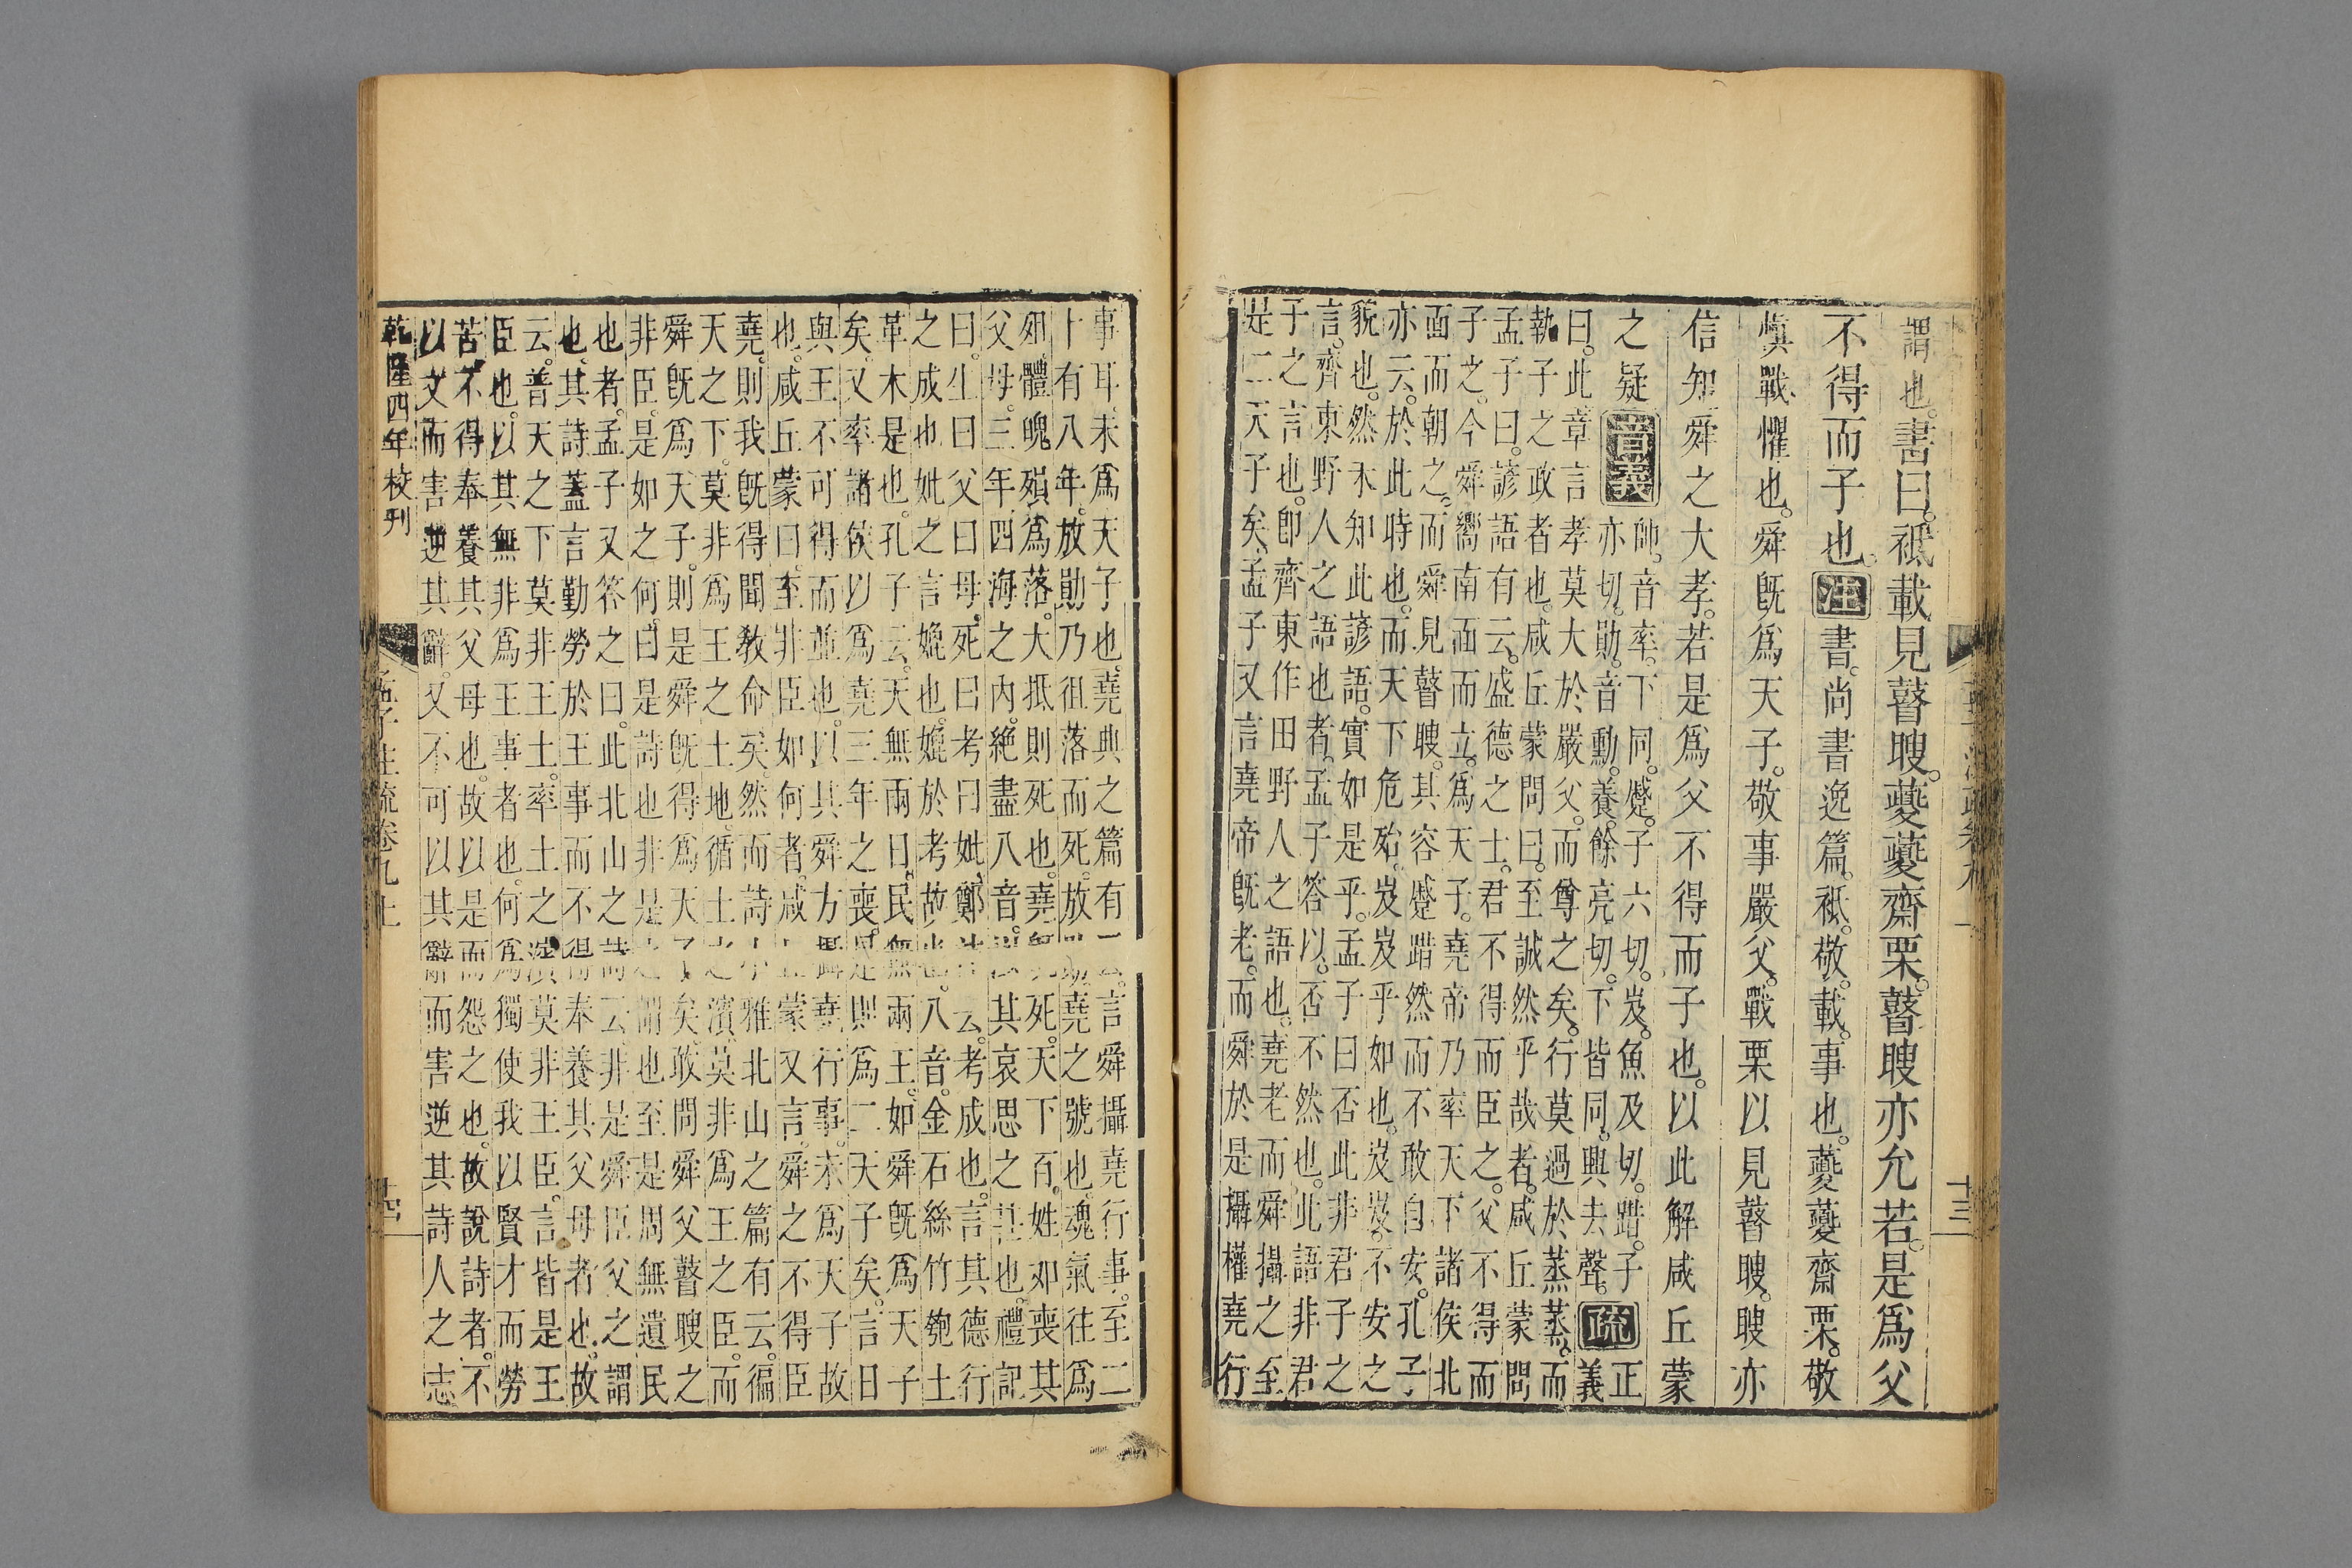 謂也。書曰。祇載見瞽瞍。夔夔齋栗。瞽瞍亦允若。是爲父
不得而子也。注書。尚書逸篇。祗。敬。載。事也。夔夔齋栗。敬
愼戰懼也。舜旣爲天子。敬事嚴父。戰栗以見瞽瞍。瞍亦
信知舜之大孝。若是爲父不得而子也。以此解咸丘蒙
之疑音義帥。音率。下同。蹙。子六切。岌。魚及切。踖。子
亦切。勛。音勳。養。餘亮切。下皆同。輿去聲。疏正
義
曰。此章言孝莫大於嚴父。而尊之矣。行莫過於蒸蒸。而
執子之政者也。咸丘蒙問曰。至誠然乎哉者。咸丘蒙問
孟子曰。諺語有云。盛德之士。君不得而臣之。父不得而
子之。今舜嚮南面而立。爲天子。堯帝乃率天下諸侯北
面而朝之。而舜見瞽瞍。其容蹙踖然而不敢自安。孔子
亦云。於此時也。而天下危殆。岌岌乎如也。岌岌。不安之
貌也。然未知此諺語。實如是乎。孟子曰否此非君子之
言。齊東野人之語也者。孟子答以。否不然也。此語非君
子之言也。卽齊東作田野人之語也。堯老而舜攝之至
是二天子矣。孟子又言堯帝旣老。而舜於是攝權堯行
事耳。未爲天子也。堯典之篇有云。言舜攝堯行事。至二
十有八年。放勛乃徂落而死。放勛。堯之號也。魂氣往爲
殂。體魄殞爲落。大抵則死也。堯旣死。天下百姓如喪其
父母。三年。四海之內。絶盡八音。以其哀思之甚也。禮記
曰。生曰父曰母。死曰考曰妣。鄭注云。考。成也。言其德行
之成也妣之言媲也。媲於考故也。八音。金石絲竹匏土
革木是也。孔子云。天無兩日。民無兩王。如舜旣爲天子
矣。又率諸侯以爲堯三年之喪。是則爲二天子矣。言日
與王不可得而並也。以其舜方攝堯行事。未爲天子故
也。咸丘蒙曰。至非臣如何者。咸丘蒙又言。舜之不得臣
堯。則我旣得聞敎命矣。然而詩小雅北山之篇有云。徧
天之下。莫非爲王之土地。循土之濱。莫非爲王之臣。而
舜旣爲天子。則是舜旣得爲天子矣。敢問舜父瞽瞍之
非臣。是如之何。曰是詩也非是之謂也至是周無遺民
也者。孟子又答之曰。此北山之詩云。非是舜臣父之謂
也。其詩蓋言勤勞於王事而不得奉養其父母者也。故
云。普天之下莫非王土。率土之濱莫非王臣。言皆是王
臣也。以其無非爲王事者也。何爲獨使我以賢才而勞
苦。不得奉養其父母也。故以是而怨之也。故說詩者。不
以文而害逆其辭。又不可以其辭而害逆其詩人之志
乾隆四年校刊
孟子注疏卷九上